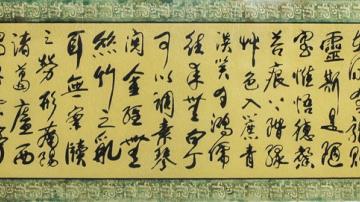 靈斯是陋
室惟吾德馨
苔痕上階緑
艸色入簾青
談笑有鴻儒
往来無白丁
可以調素琴
閱金經無
絲竹之亂
耳無案牘
之勞形南陽
諸葛廬西